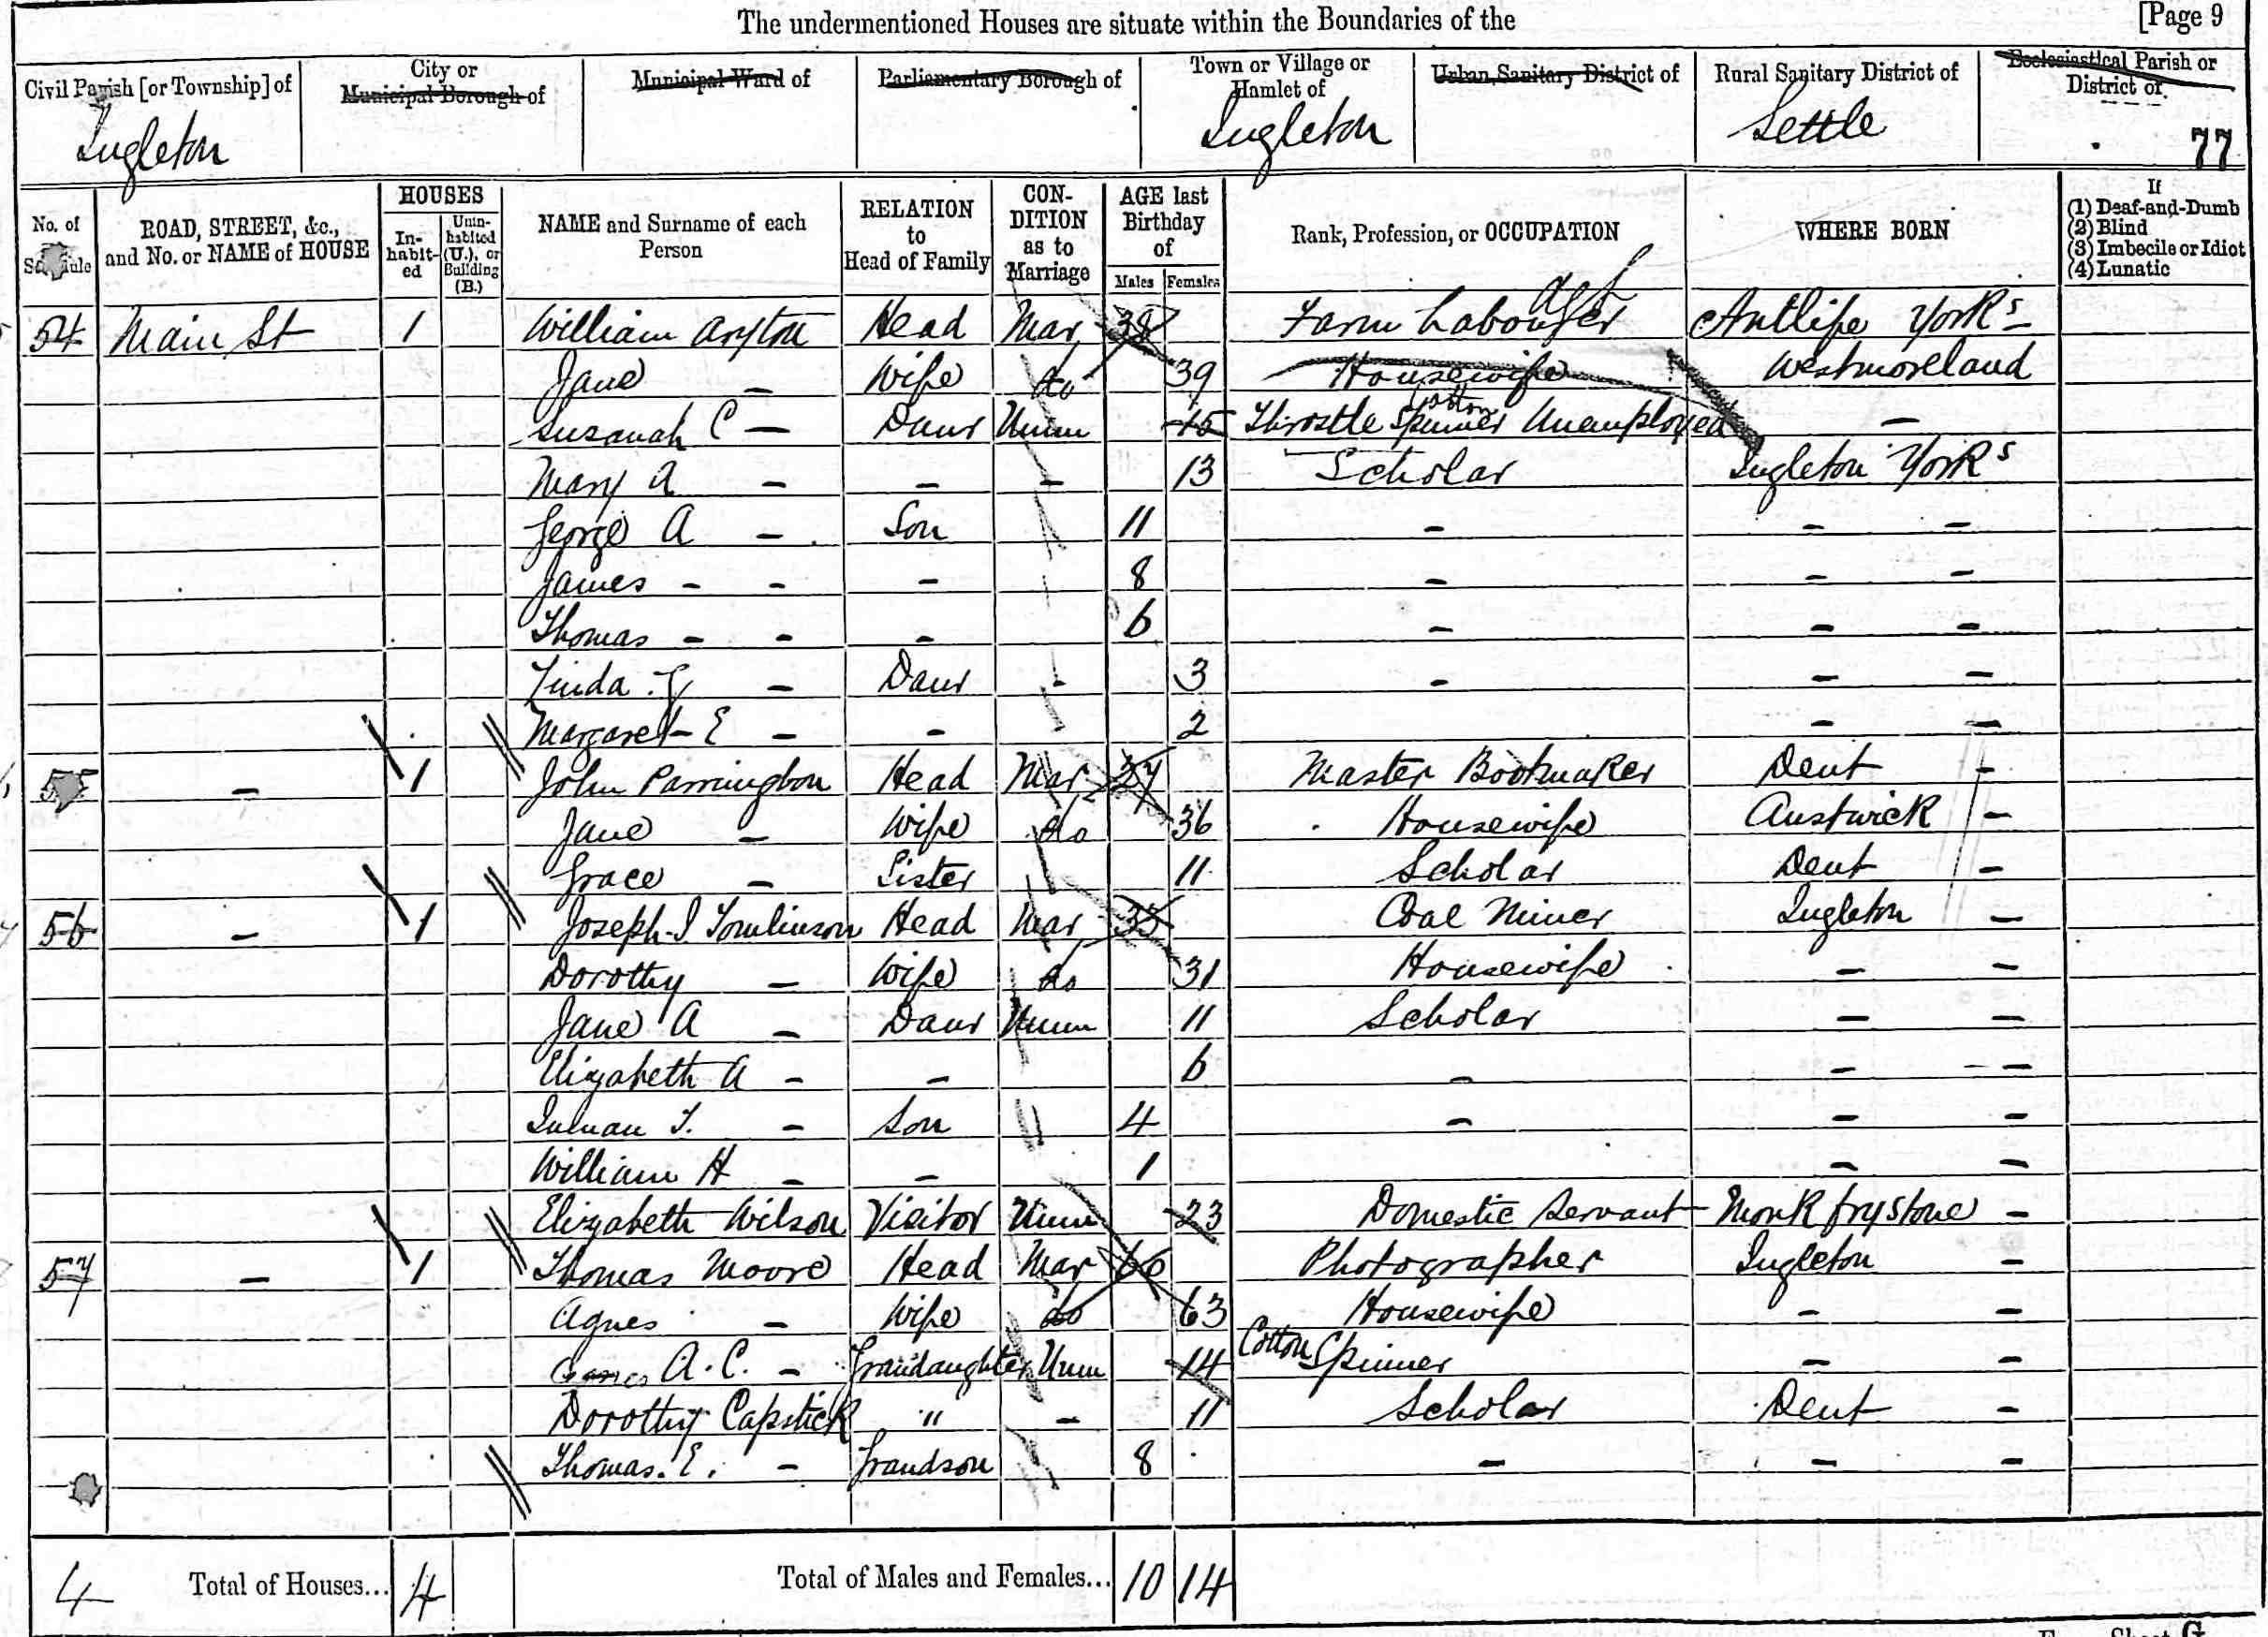 The undermentioned Houses are situate within the Boundaries of the
[Page 9
Civil Parish [or Township] of
Ingleton
City or
Municipal Borough of
Municipal Ward of
Parliamentary Borough of
Town or Village or
Hamlet of
Ingleton
Urban Sanitary District of
Rural Sanitary District of
Settle
Ecclesiastical Parish or
District of
77
No. of
Schedule
ROAD, STREET, &c.,
and No. or NAME of HOUSE
HOUSES
In-
habit-
ed
Unin-
habited
(U.), or
Building
(B.)
NAME and Surname of each
Person
RELATION
to
Head of Family
CON-
DITION
as to
Marriage
AGE last
Birthday
of
Males Females
Rank, Profession, or OCCUPATION
WHERE BORN
If
(1) Deaf-and-Dumb
(2) Blind
(3) Imbecile or Idiot
(4) Lunatic
54 Main St 1 William Head Mar 38 Farm Labourer Yorks
Jane - Wife do 39 Housewife Westmoreland
Suzanah C - Daur Unm 15 Throstle Cotton Spinner Unemployed -
Mary A - - - 13 Scholar Ingleton Yorks
George A - Son 11 - - -
James - - - 8 - - -
Thomas - - - 6 - - -
- Daur - 3 - - -
Margaret E - - 2 - -
55 - 1 John Head Mar 37 Master Bootmaker Dent -
Jane - Wife do 36 Housewife Austwick -
Grace - Sister 11 Scholar Dent -
56 - 1 Joseph I. Tomlinson Head Mar 35 Coal Miner Ingleton -
Dorothy - Wife do 31 Housewife - -
Jane A - Daur Unm 11 Scholar - -
Elizabeth A - - 6 - - -
Inman T. - Son 4 - - -
William H - - 1 - -
Elizabeth Wilson Visitor Unm 23 Domestic Servant Monk frystone -
57 - 1 Thomas Moore Head Mar 66 Photographer Ingleton -
Agnes - Wife do 63 Housewife - -
A. C. - Grandaughter Unm 14 Cotton Spinner - -
Dorothy Capstick " - 11 Scholar Dent -
Thomas. E. - Grandson 8 - - -
4 Total of Houses... 4 Total of Males and Females... 10 14